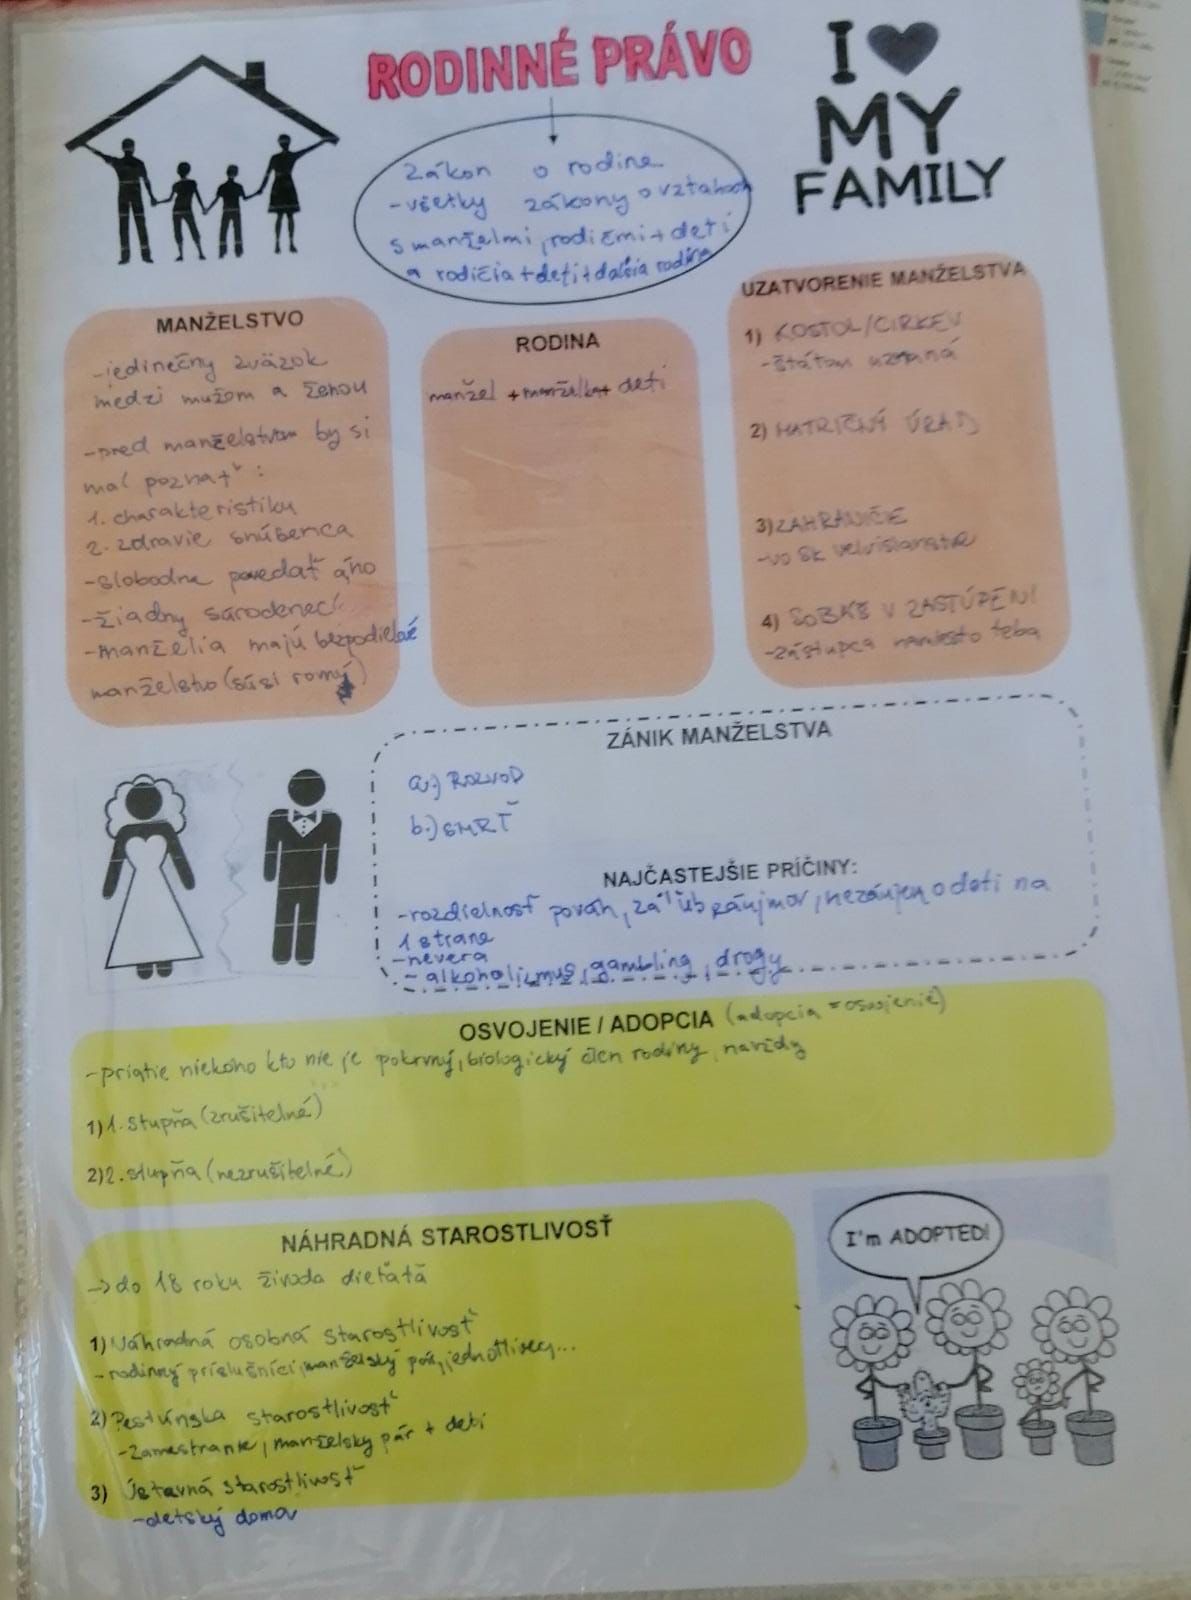 RODINNÉ PRÁVO
I ♥
MY
FAMILY
Zákon o rodine
-všetky zákony o vzťahoch
s manželmi, rodičmi + detí
a rodičia + deti + ďalšia rodina
MANŽELSTVO
-jedinečny zväzok
medzi mužom a ženou
-pred manželstvom by si
mal poznať:
1. charakteristiku
2. zdravie snúbenca
-slobodne povedať áno
-žiadny súrodenec
-manželia majú bezpodielové
manželstvo (súsi rovný)
RODINA
manžel + manželka + deti
UZATVORENIE MANŽELSTVA
1) KOSTOL/CIRKEV
-štátom uznaná
2) MATRIČNÝ ÚRAD
3) ZAHRANIČIE
-vo SK veľvislanstve
4) SOBÁŠ V ZASTÚPENÍ
-zástupca namiesto teba
ZÁNIK MANŽELSTVA
a.) ROZVOD
b.) SMRŤ
NAJČASTEJŠIE PRÍČINY:
-rozdielnosť pováh, záľúb, záujmov, nezáujem o deti na
1 strane
-nevera
- alkoholizmus, gambling, drogy
OSVOJENIE / ADOPCIA (adopcia = osvojenie)
-prijatie niekoho kto nie je pokrvný, biologický člen rodiny, navždy
1) 1. stupňa (zrušiteľné)
2) 2. stupňa (nezrušiteľné)
NÁHRADNÁ STAROSTLIVOSŤ
-> do 18 roku života dieťaťa
1) Náhradná osobná starostlivosť
- rodinný príslušníci, manželský pár, jednotlivec...
2) Pestúnska starostlivosť
-zamestnanie, manželsky pár + deti
3) Ústavná starostlivosť
-detský domov
I'm ADOPTED!